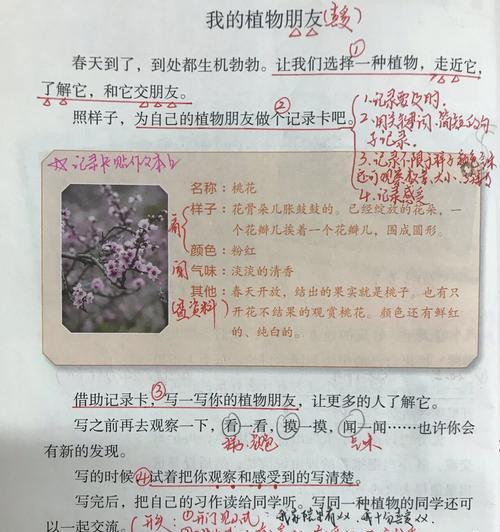 我的植物朋友
春天到了，到处都生机勃勃。让我们选择一种植物，走近它，
①
了解它，和它交朋友。
②
照样子，为自己的植物朋友做个记录卡吧。
1.记录要及时.
2.用关键词、简短的句
子记录.
3.记录不限于样子、颜色、气味
还可观察数量、大小、
4.记录感受
记录卡贴作文本上
名称：桃花
样子：花骨朵儿胀鼓鼓的。已经绽放的花朵，一
个花瓣儿挨着一个花瓣儿，围成圆形。
看
颜色：粉红
闻
气味：淡淡的清香
其他：春天开放，结出的果实就是桃子。也有只
（查资料）
开花不结果的观赏桃花。颜色还有鲜红
的、纯白的。
③
借助记录卡，写一写你的植物朋友，让更多的人了解它。
写之前再去观察一下，看一看，摸一摸，闻一闻……也许你会
样子、颜色
气味
有新的发现。
写的时候④试着把你观察和感受到的写清楚。
写完后，把自己的习作读给同学听。写同一种植物的同学还可
以一起交流。
开头：①开门见山式